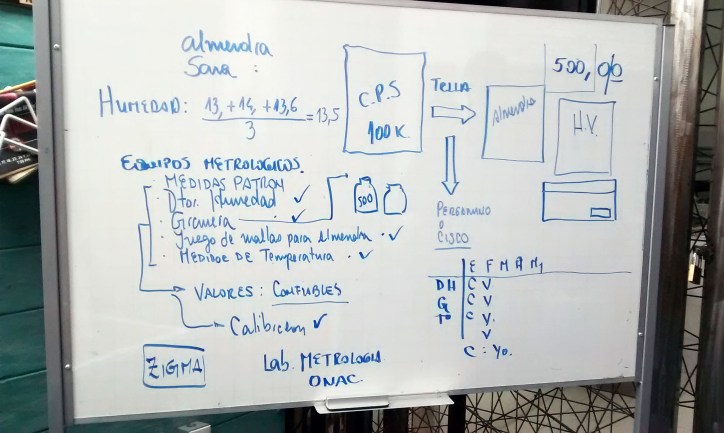 almendra
Sana :
HUMEDAD: 13, + 14, + 13,6 = 13,5
3
C.P.S
100 K.
TRILLA
almendra
500, 00
H.V.
EQUIPOS METROLOGICOS.
· MEDIDAS PATRON
· Dtor. Humedad ✓
· Gramera ✓
500
· Juego de mallas para almendra · ✓
· MEDIDOR DE Temperatura · ✓
PERGAMINO
o
CISCO
VALORES : CONFIABLES
Calibracion ✓
E F M A M
DH C V
G C V
T° C V.
V
C : Yo.
ZIGMA
Lab. METROLOGIA
ONAC.